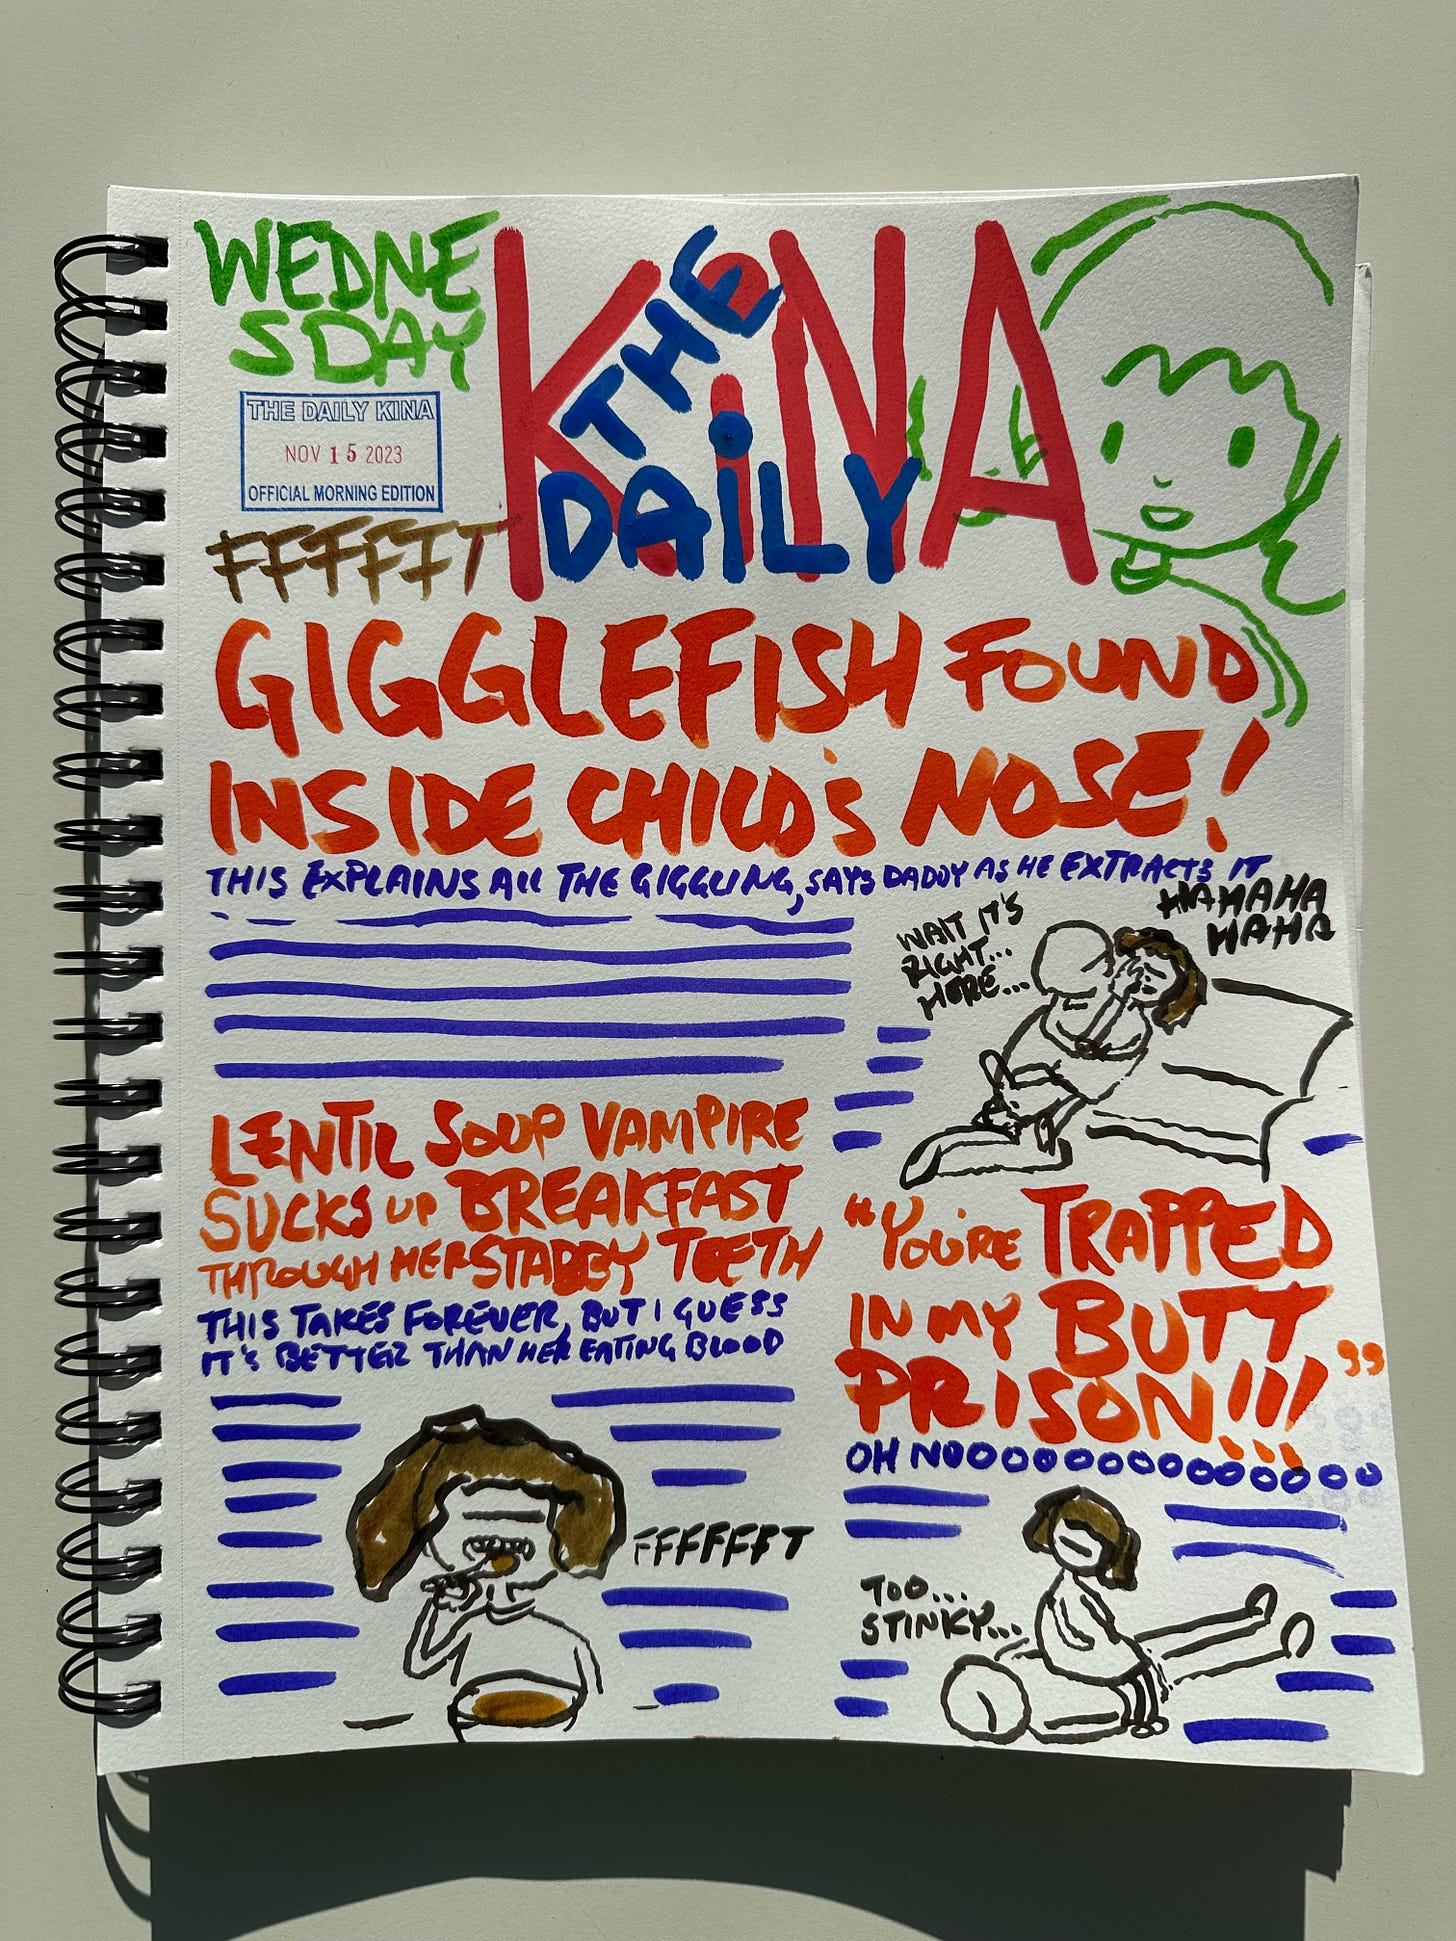 WEDNE
SDAY
THE DAILY KINA
NOV 15 2023
OFFICIAL MORNING EDITION
FFFFFFT
THE
DAiLY
KiNA
GIGGLEFISH FOUND
INSIDE CHILD'S NOSE!
THIS EXPLAINS All THE GIGGLING, SAYS DADDY AS HE EXTRACTS IT
WAIT IT'S
RIGHT...
HERE...
HAHAHA
HAHA
LENTIL SOUP VAMPIRE
SUCKS UP BREAKFAST
THROUGH HER STABBY TEETH
THIS TAKES FOREVER, BUT I GUESS
IT'S BETTER THAN HER EATING BLOOD
FFFFFFT
"YOU'RE TRAPPED
IN MY BUTT
PRISON!!!"
OH NOOOOOOOOOOOOOOO
TOO...
STINKY...